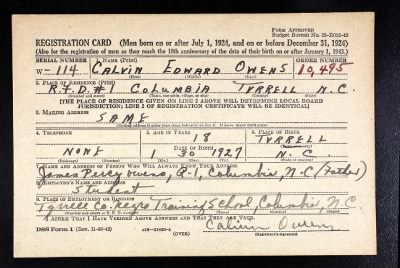 FORM APPROVED
REGISTRATION CARD (Men born on or after July 1, 1924, and on or before December 31, 1924)
(Also for the registration of men as they reach the 18th anniversary of the date of their birth on or after January 1, 1943.)
SERIAL NUMBER 1. NAME (Print) ORDER NUMBER
W-114 CALVIN EDWARD OWENS 10,495
2. PLACE OF RESIDENCE (Print)
R.F.D. #1 COLUMBIA TYRRELL N.C.
[THE PLACE OF RESIDENCE GIVEN ON LINE 2 ABOVE WILL DETERMINE LOCAL BOARD
JURISDICTION; LINE 2 OF REGISTRATION CERTIFICATE WILL BE IDENTICAL]
3. MAILING ADDRESS
SAME
4. TELEPHONE 5. AGE IN YEARS 6. PLACE OF BIRTH
18 TYRRELL
DATE OF BIRTH
NONE 1 30 1927 N.C.
7. NAME AND ADDRESS OF PERSON WHO WILL ALWAYS KNOW YOUR ADDRESS
James Percy Owens, R-1, Columbia, N.C (Father)
8. EMPLOYER'S NAME AND ADDRESS
Student
9. PLACE OF EMPLOYMENT OR BUSINESS
Tyrrell Co. Negro Training School, Columbia, N.C.
I AFFIRM THAT I HAVE VERIFIED ABOVE ANSWERS AND THAT THEY ARE TRUE.
DSS Form 1 (Rev. 11-16-42) (OVER) Calvin Owens